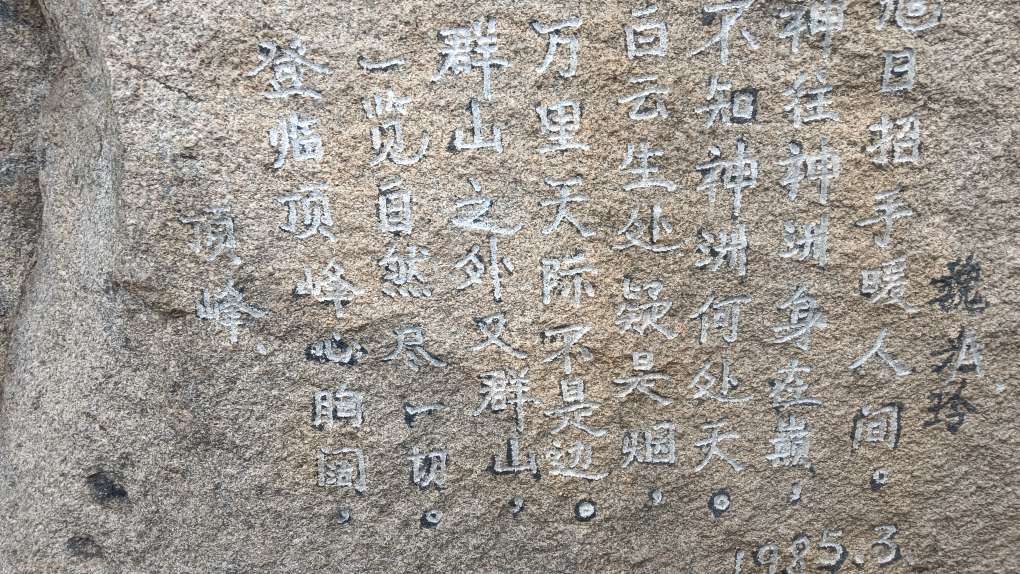 顶峰.
登临顶峰心胸阔，
一览自然尽一切。
群山之外又群山，
万里天际不是边。
白云生处疑是烟，
不知神洲何处天。
神往神洲身在巅，
旭日招手暖人间。
魏
1985.3